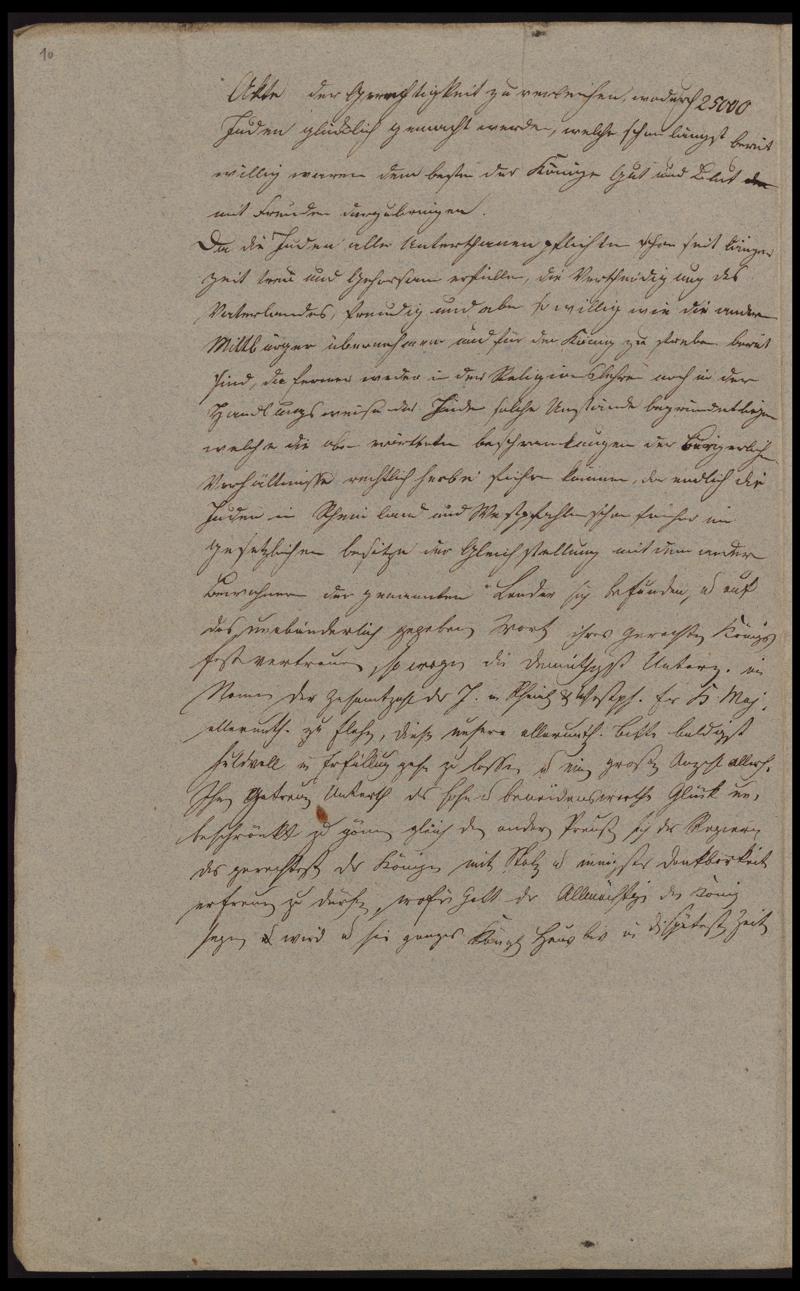 10
Akte der Gerechtigkeit zu verleihen, wodurch 25000
Juden glücklich gemacht werden, welche schon längst bereit
willig waren dem besten der Könige Gut und Blut
mit Freuden darzubringen.
Da die Juden alle Unterthanenpflichten schon seit langer
Zeit treu und Gehorsam erfüllen, die Vertheidigung des
Vaterlandes, freudig und eben so willig wie die andern
Mittbürger übernehmen und für den König zu sterben bereit
sind, da ferner weder in der Religionslehre noch in der
Handlungsweise der Juden solche Umstände begründet liegen
welche die oben erörterten beschrenkungen der Bürgerlichen
Verhältnisse rechtlich herbei führen können, da endlich die
Juden in Rheinland und Westpfahlen schon früher im
gesetzlichen besitze der Gleichstellung mit den andern
Bewohnern der genannten Lender sich befunden, u auf
das unabänderlich gegeben Wort ihres gerechten Königs
fest vertrauen, so wagen die demüthigst Unterz. im
Namen der Gesamtzahl der J. in Rheinl & Westph. Ew K Maj.
allerunth. zu flehen, diese unsere allerunth. Bitte baldigst
huldvoll in Erfüllung gehn zu lassen u eine große Anzahl allerh.
Ihren Getreuen Unterth das hohe u beneidenswerthe Glück un,
beschränkt zu gönnen gleich den andern Preuß sich der Regierung
des gerechtest der Könige mit Stolz u innigster Dankbarkeit
erfreuen zu dürfen, wofür Gott der Allmächtige den König
segnen wird u sein ganzes Königl Haus bis in die späteste Zeit